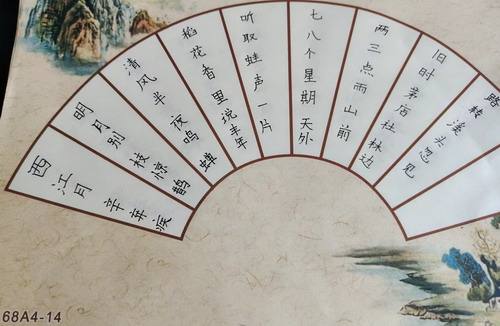 西江月 辛弃疾
明月别枝惊鹊
清风半夜鸣蝉
稻花香里说丰年
听取蛙声一片
七八个星期天外
两三点雨山前
旧时茅店社林边
路转溪头忽见
68A4-14